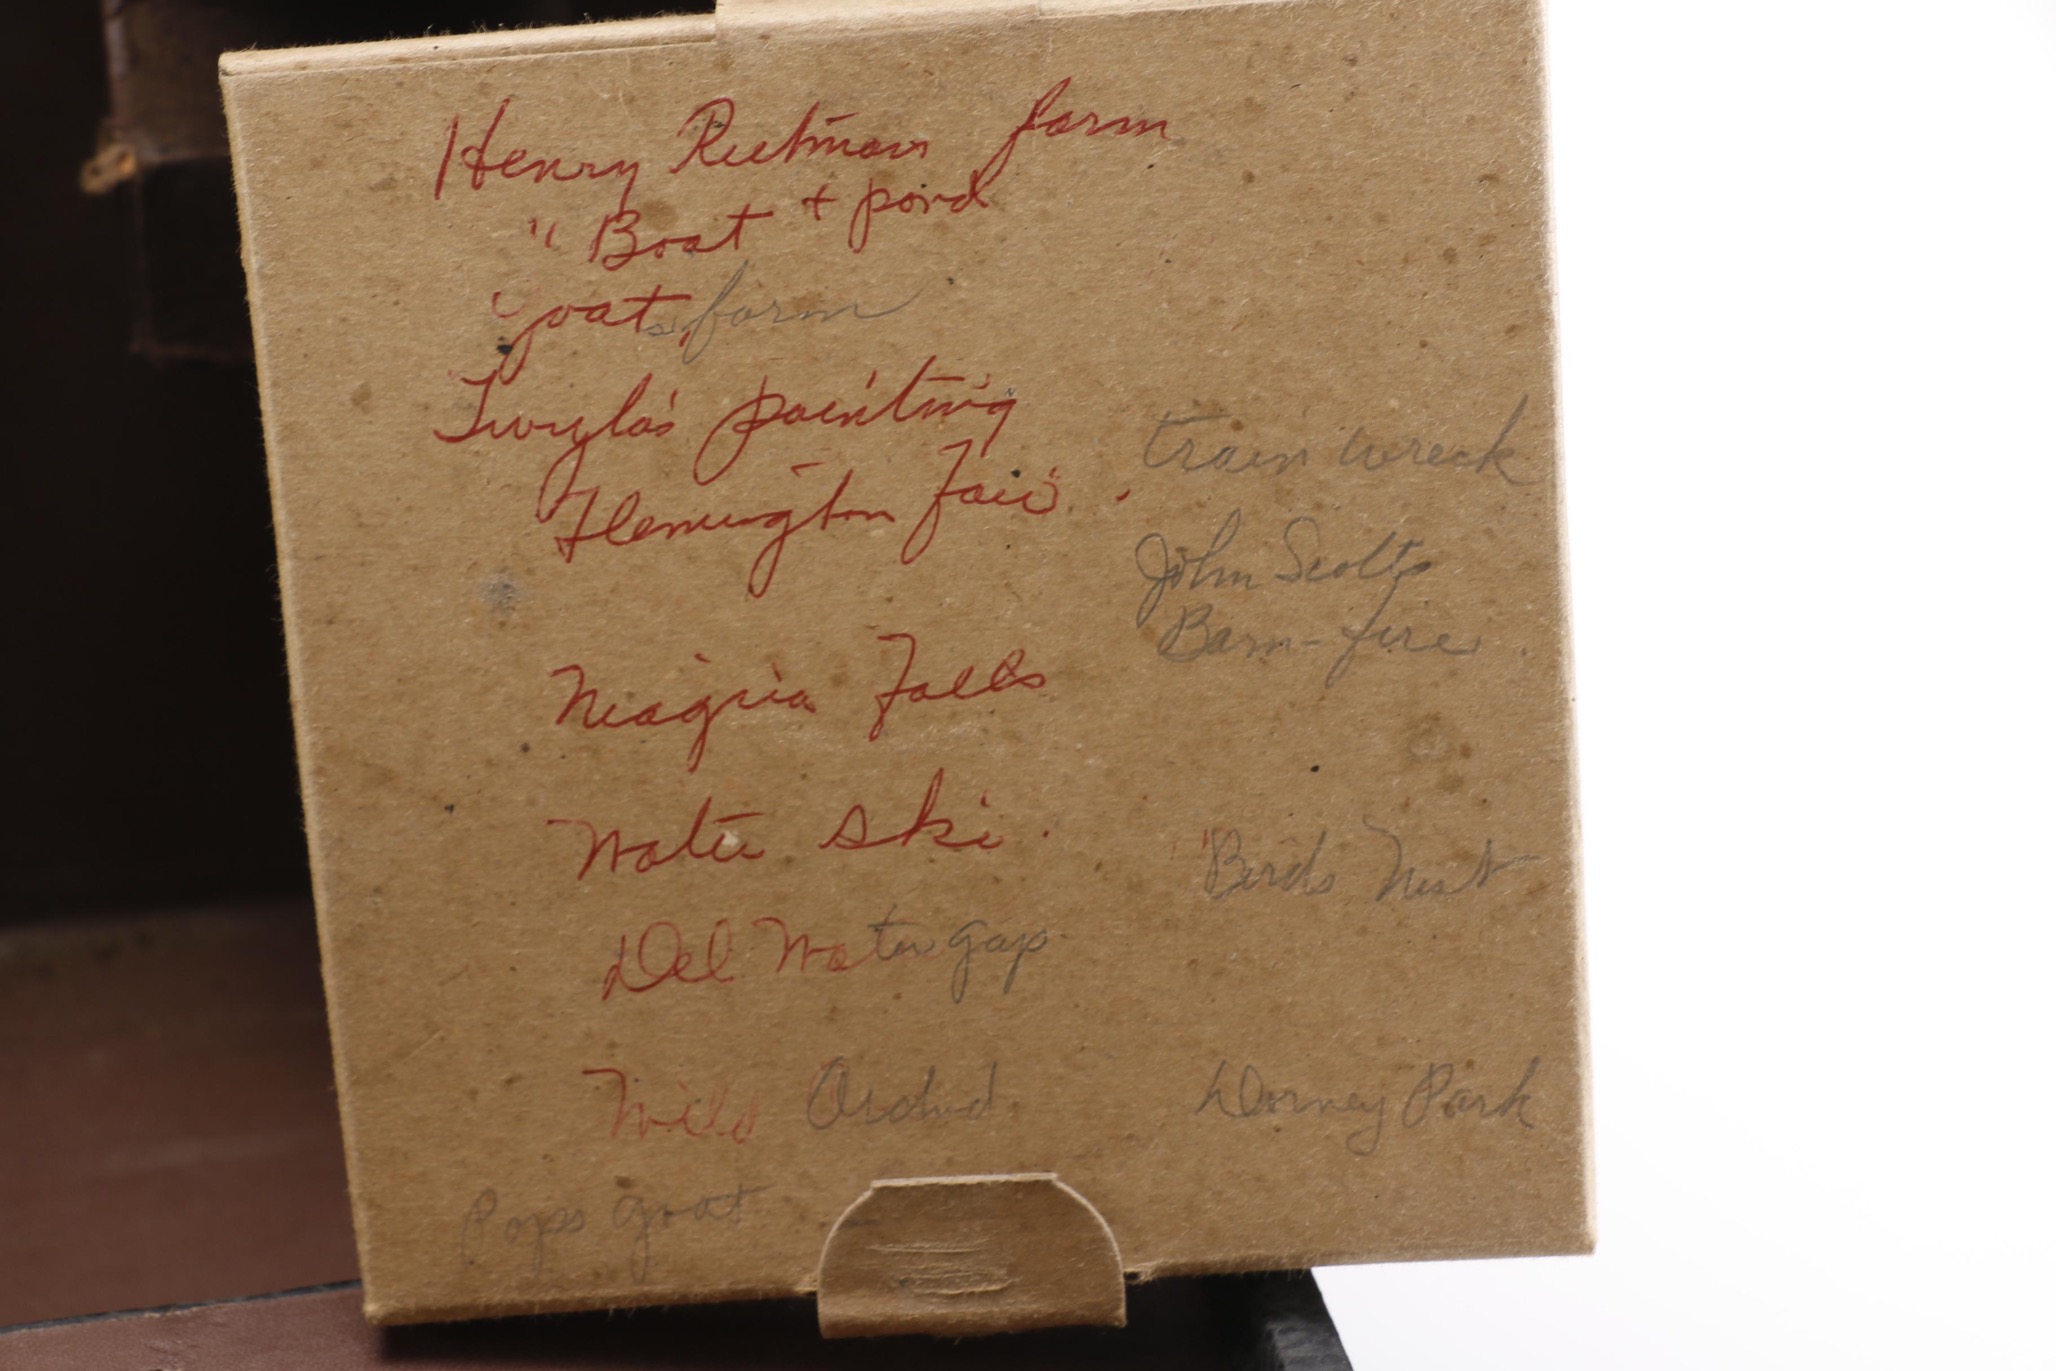 Henry Rutman farm
" Boat + pond
goats farm
Twyla's painting
Flemington Fair.
train wreck
John Scotts
Barn-fire.
Niagria Falls
Water ski.
"Birds Nest
Del Water gap
Wild Orchid
Dorney Park
Pops goat